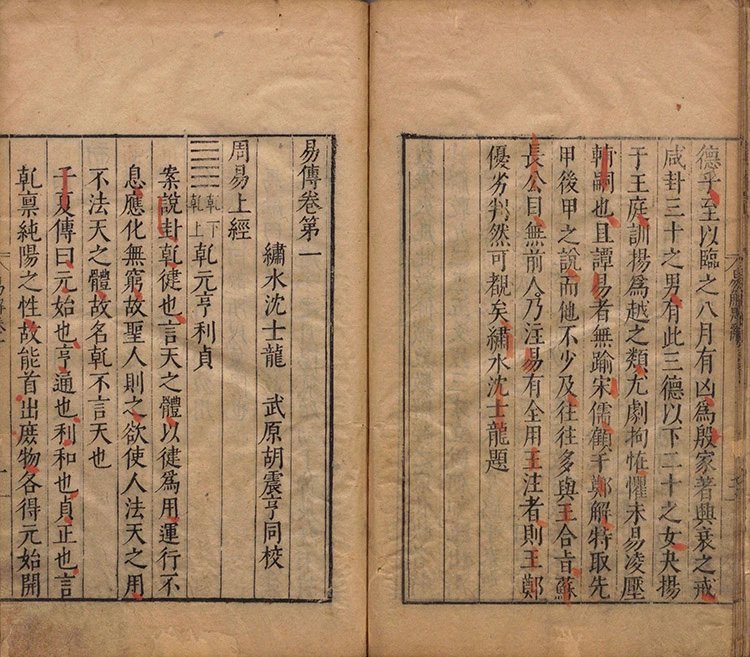 德乎至以臨之八月有凶為殷家著興衰之戒
咸卦三十之男有此三德以下二十之女夬揚
于王庭訓揚為越之類尤劇拘怪懼未易凌壓
輔嗣也且譚易者無踰宋儒顧于鄭解特取先
甲後甲之說而他不少及往往多與王合旨蘇
長公目無前人乃注易有全用王注者則王鄭
優劣判然可覩矣繡水沈士龍題
易傳卷第一
繡水沈士龍 武原胡震亨同校
周易上經
乾下乾上 乾元亨利貞
案說卦乾健也言天之體以健為用運行不
息應化無窮故聖人則之欲使人法天之用
不法天之體故名乾不言天也
子夏傳曰元始也亨通也利和也貞正也言
乾稟純陽之性故能首出庶物各得元始開